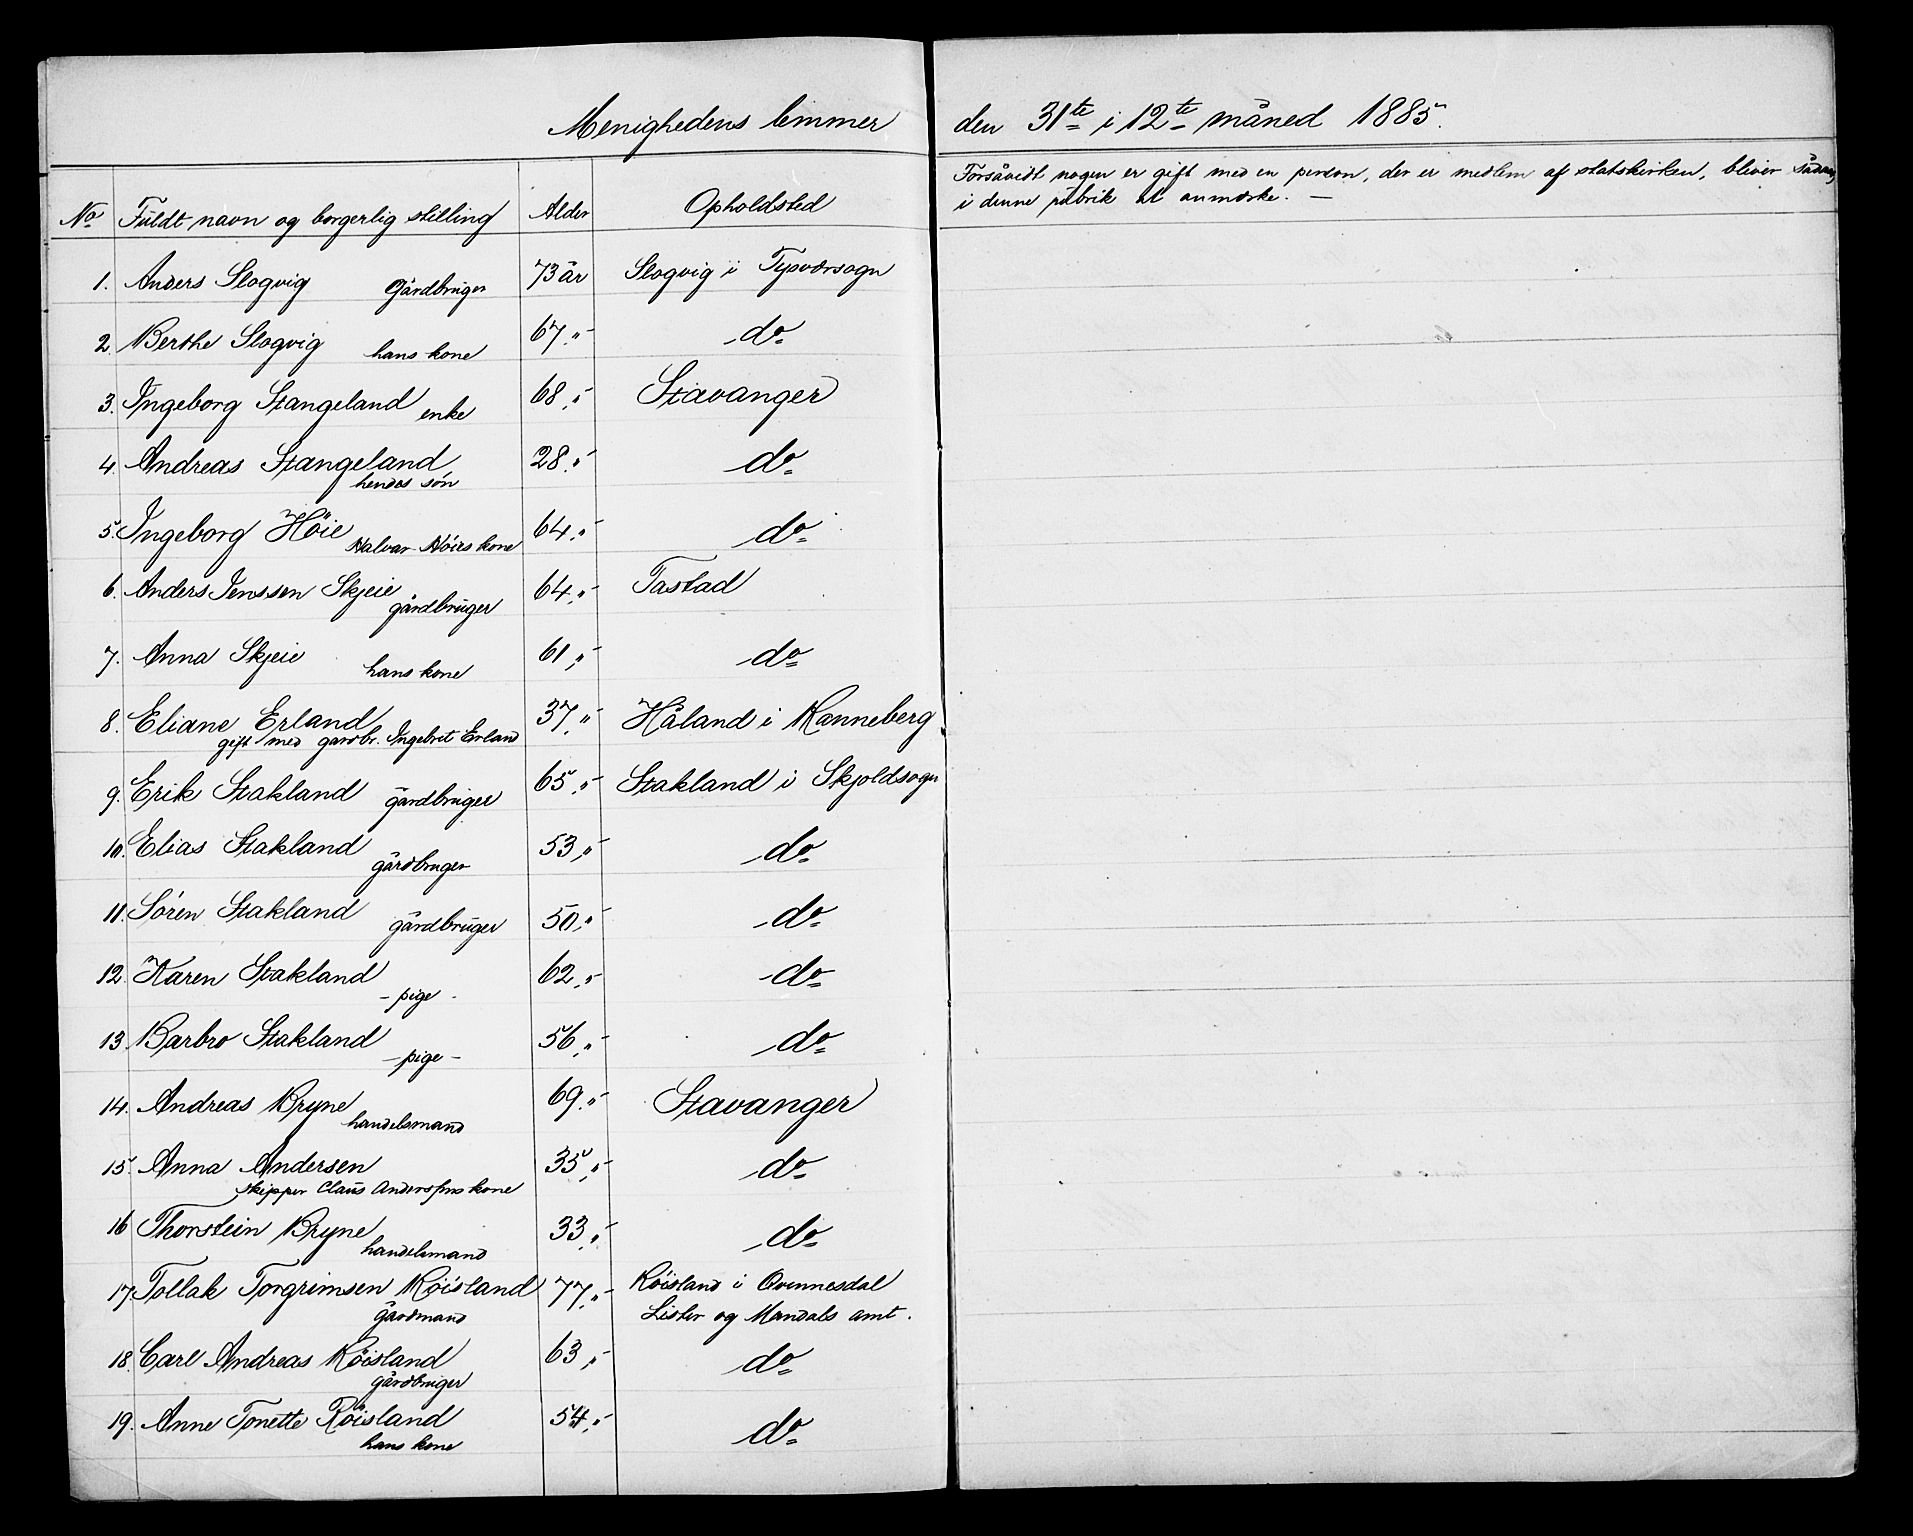 Menighedens lemmer den 31te i 12te måned 1885.
No Fuldt navn og borgerlig stilling Alder Opholdsted
Forsåvidt nogen er gift med en person, der er medlem af statskirken, bliver sådan
i denne rubrik at anmærke. —
1. Anders Slogvig Gårdbruger 73 år Slogvig i Tysværsogn
2. Berthe Slogvig hans kone 67 „ do
3. Ingeborg Stangeland enke 68 „ Stavanger
4. Andreas Stangeland 28 „ do
hendes sön
5. Ingeborg Höie Halvar Höies kone 64 „ do
6. Anders Jenssen Skjeie 64 „ Tastad
gårdbruger
7. Anna Skjeie hans kone 61 „ do
8. Eliane Erland 37 „ Håland i Ranneberg
gift med gardbr. Ingebret Erland
9. Erik Stakland gårdbruger 65 „ Stakland i Skjoldsogn
10. Elias Stakland gårdbruger 53 „ do
11. Sören Stakland gårdbruger 50 „ do
12 Karen Stakland - pige - 62 „ do
13 Barbro Stakland - pige - 56 „ do
14. Andreas Bryne 69 „ Stavanger
handelsmand
15. Anna Andersen 35 „ do
skipper Claus Anderssens kone
16 Thorstein Bryne 33 „ do
handelsmand
17. Tollak Torgrimsen Röisland 77 „ Röisland i Qvinnesdal
Gårdmand Lister og Mandals amt.
18. Carl Andreas Röisland 63 „ do
gårdbruger
19. Anne Tonette Röisland 54 „ do
hans kone